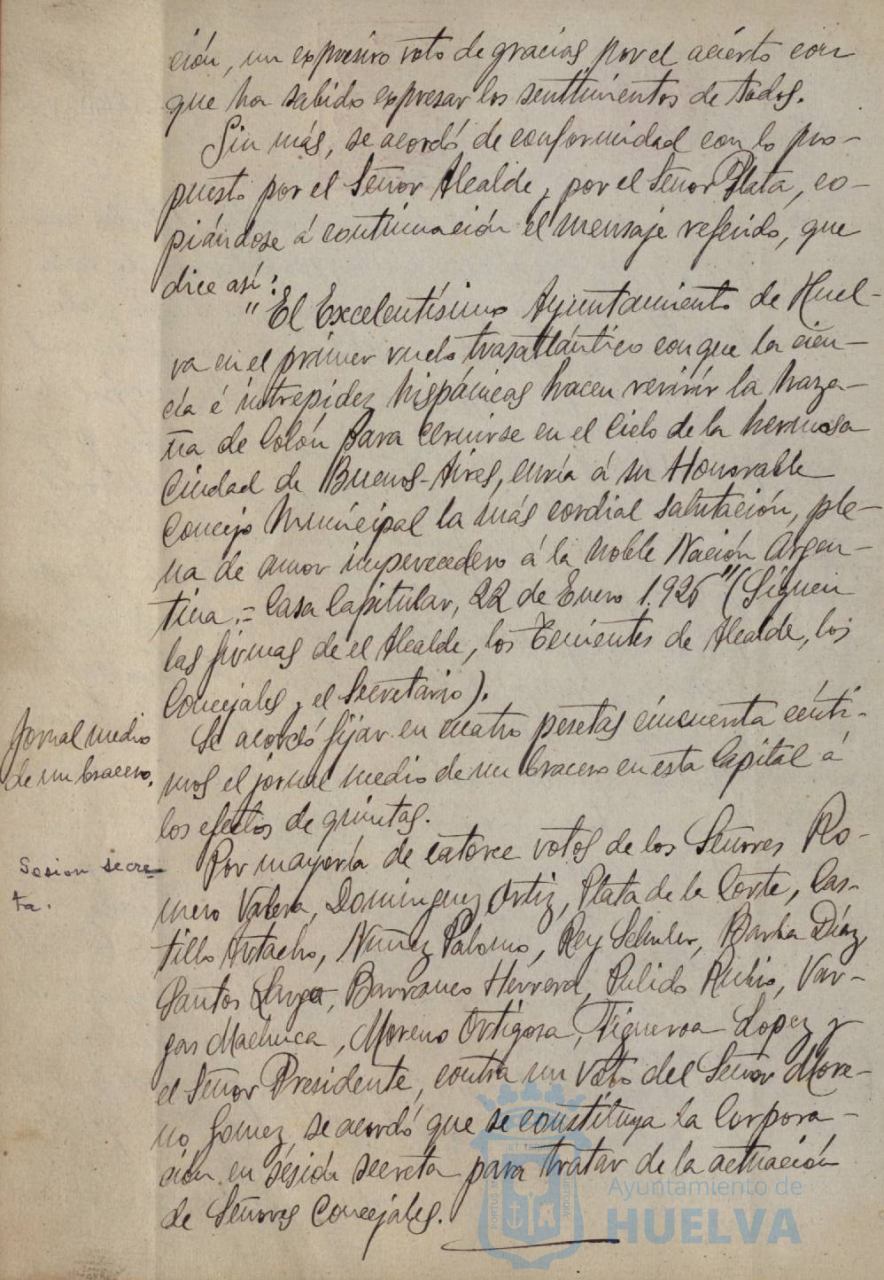 ción, un expresivo voto de gracias por el acierto con
que ha sabido expresar los sentimientos de todos.
Sin más, se acordó de conformidad con lo pro-
puesto por el Señor Alcalde y por el Señor Plata, co-
piándose á continuación el mensaje referido, que
dice así:
"El Excelentísimo Ayuntamiento de Huel-
va en el primer vuelo trasatlántico con que la cien-
cia é intrepidez hispánicas hacen revivir la haza-
ña de Colón para cernirse en el Cielo de la hermosa
Ciudad de Buenos-Aires, envía á su Honorable
Concejo Municipal la más cordial salutación, ple-
na de amor imperecedero á la noble Nación Argen-
tina.= Casa Capitular, 22 de Enero 1.926" (Siguen
las firmas de el Alcalde, los Tenientes de Alcalde, los
Concejales y el Secretario).
Jornal medio
de un bracero.
Se acordó fijar en cuatro pesetas cincuenta cénti-
mos el jornal medio de un bracero en esta Capital á
los efectos de quintas.
Sesion secre-
ta.
Por mayoría de catorce votos de los Señores Ro-
mero Valera, Dominguez Ortiz, Plata de la Corte, Cas-
tillo Artacho, Núñez Palomo, Rey Barba Díaz,
Santos Barranco Herrera, Pulido Rubio, Var-
gas Machuca, Moreno Ortigosa, Figueroa Lopez y
el Señor Presidente, contra un voto del Señor More-
no Gomez, se acordó que se constituya la Corpora-
ción en sesión secreta para tratar de la actuación
de Señores Concejales.
Ayuntamiento de
HUELVA